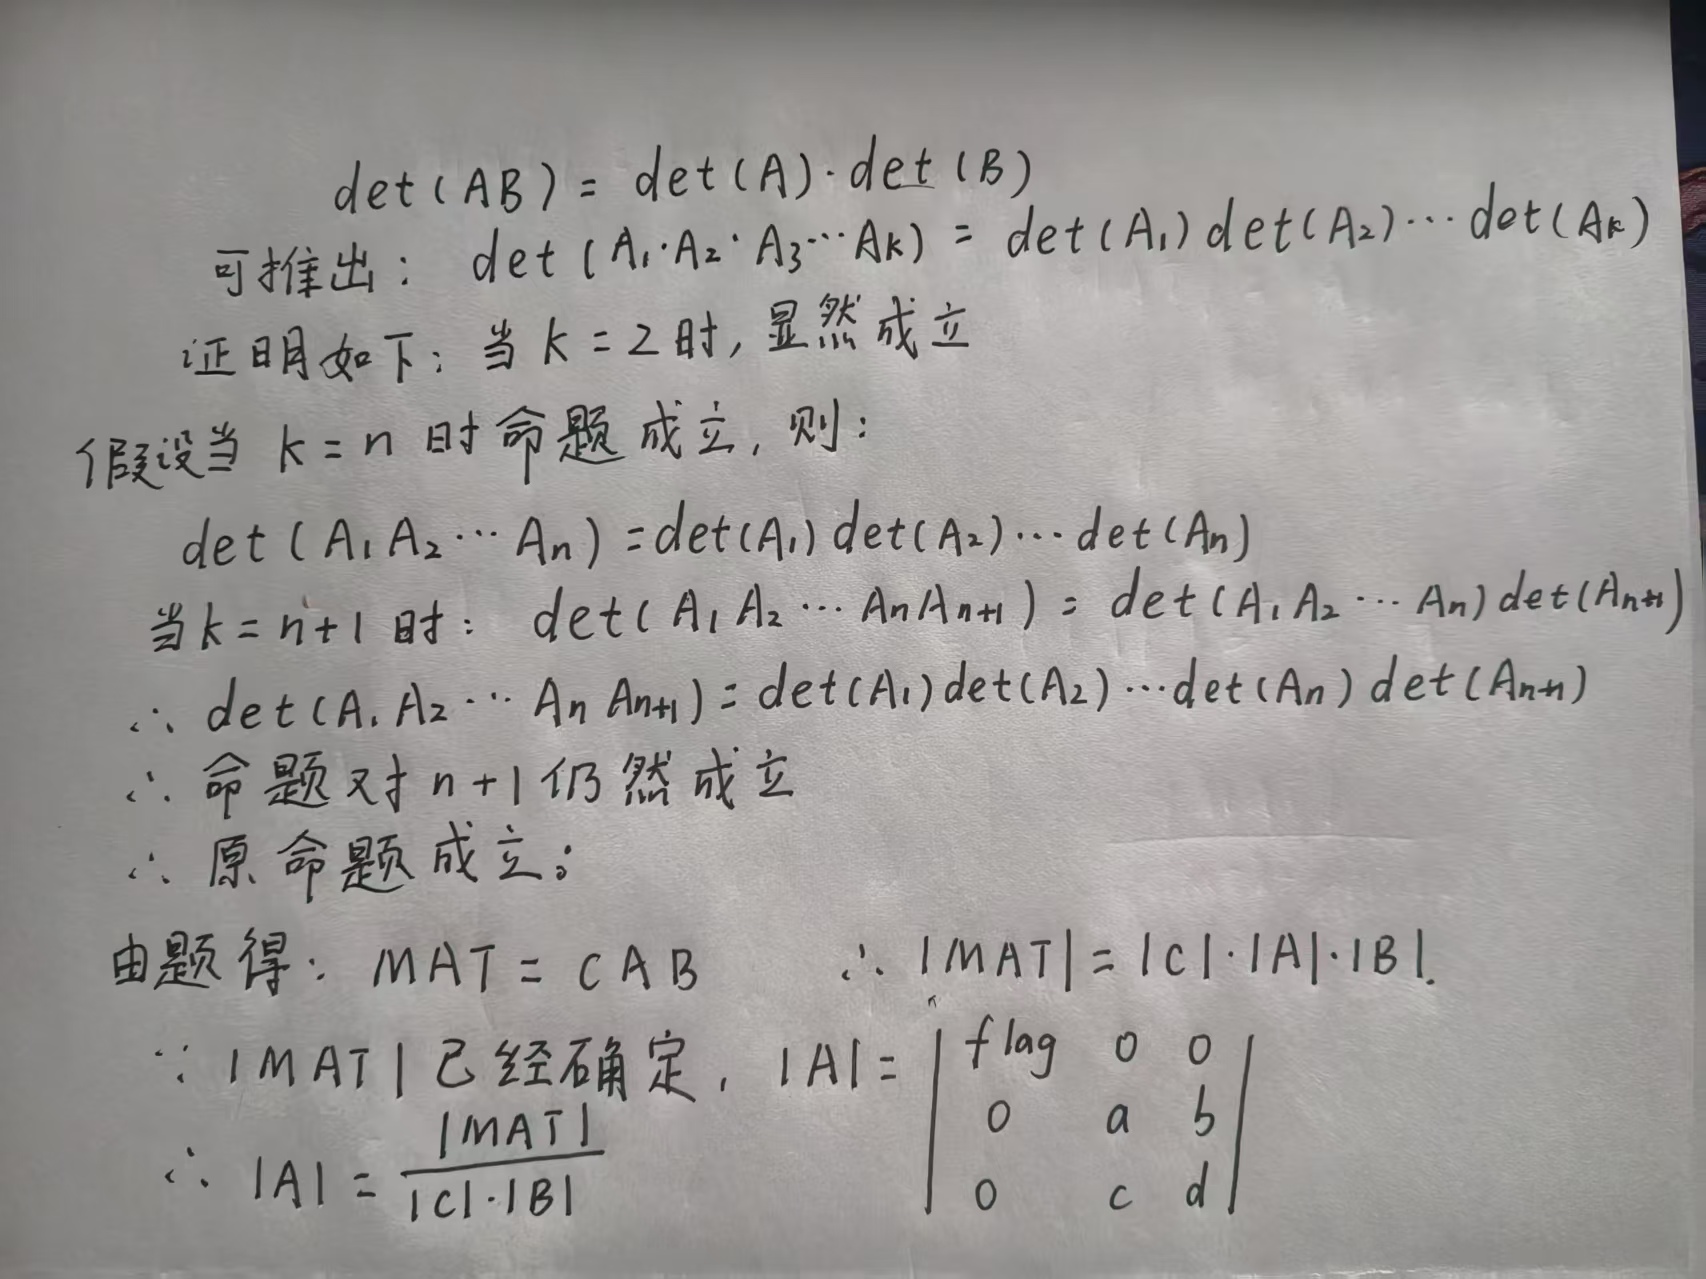 det(AB) = det(A)·det(B)
可推出: det(A₁·A₂·A₃···Aₖ) = det(A₁)det(A₂)···det(Aₖ)
证明如下: 当 k=2时, 显然成立
假设当 k=n 时命题成立, 则:
det(A₁A₂···Aₙ)=det(A₁)det(A₂)···det(Aₙ)
当k=n+1时: det(A₁A₂···AₙAₙ₊₁) = det(A₁A₂···Aₙ)det(Aₙ₊₁)
∴ det(A₁A₂···AₙAₙ₊₁)=det(A₁)det(A₂)···det(Aₙ)det(Aₙ₊₁)
∴ 命题对n+1仍然成立
∴ 原命题成立;
由题得: MAT = CAB ∴ |MAT|=|C|·|A|·|B|.
∵ |MAT|已经确定, |A|= | flag 0 0 |
| 0 a b |
| 0 c d |
∴ |A| = |MAT| / |C|·|B|